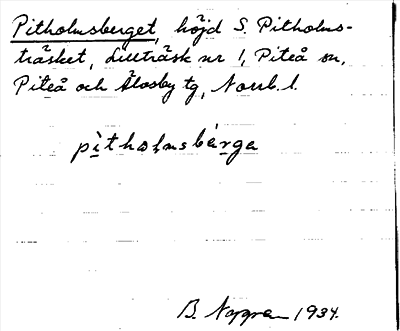 Pitholmsberget, höjd S. Pitholms-
träsket, Lillträsk nr 1, Piteå sn,
Piteå och Älvsby tg, Norrb. l.
pìthɷlmsbàrga
B. Nygren 1934.